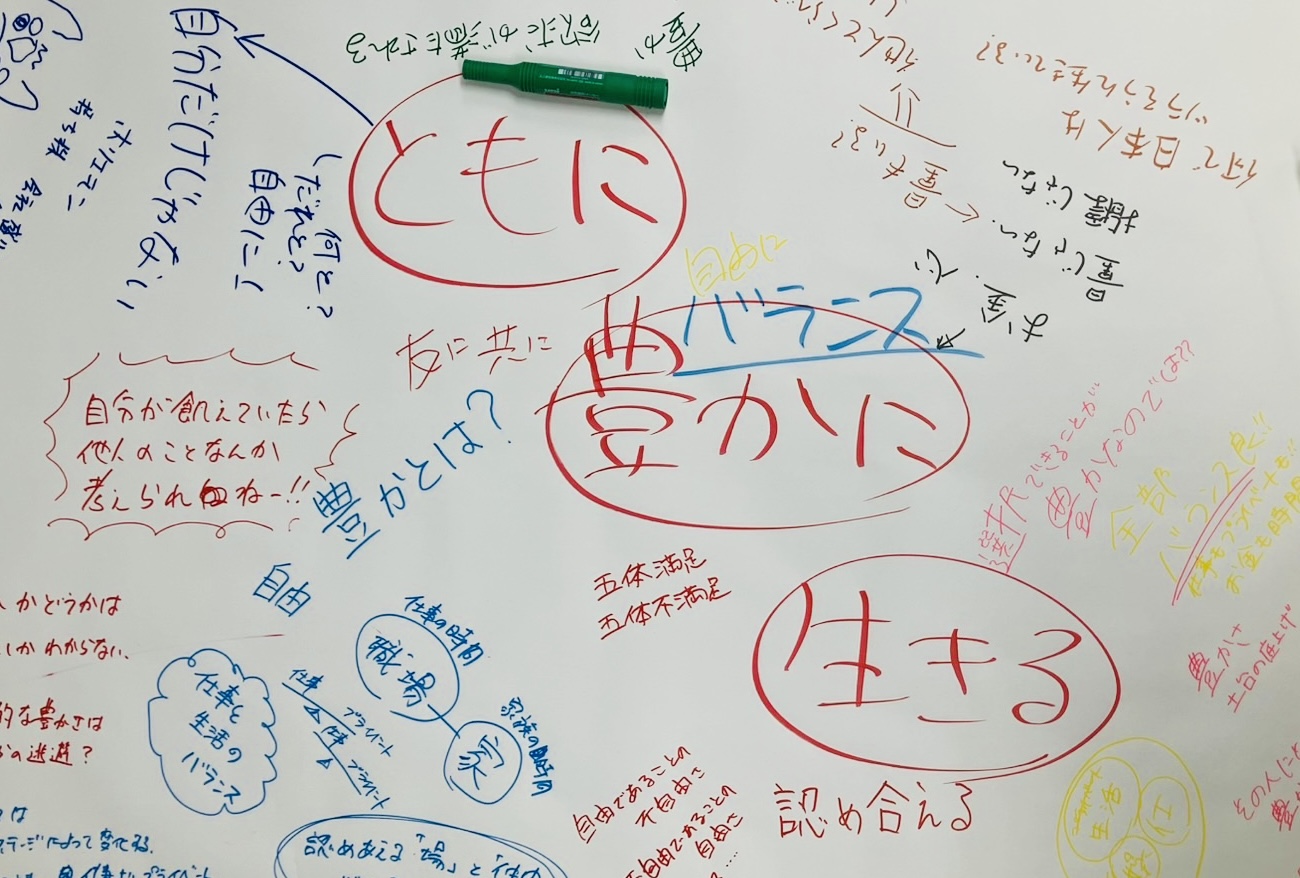 豊か
欲求が満たされる
自分だけじゃない
ともに
何と?
だれと?
自由に
ホリエモン
何で日本人は
ツラそうに生きている?
量もいる?
お金、心
量じゃない
指標じゃない
自由に
バランス
豊かに
友に 共に
自分が飢えていたら
他人のことなんか
考えられねー!!
豊かとは?
自由
選択できることが
豊かなのでは??
全部
バランス良く!!
仕事もプライベートも!!
お金も時間
五体満足
五体不満足
生きる
豊かさ
土台の底上げ
かどうかは
いか わからない。
的な豊かさは
の逃避?
仕事と
生活の
バランス
仕事の時間
職場
家族の時間
家
仕事
プライベート
仕事
プライベート
自由であることの
不自由さ
不自由であることの
自由さ
認め合える
生活
仕
その人に
は
ステージによって変化する。
認めあえる「場」と